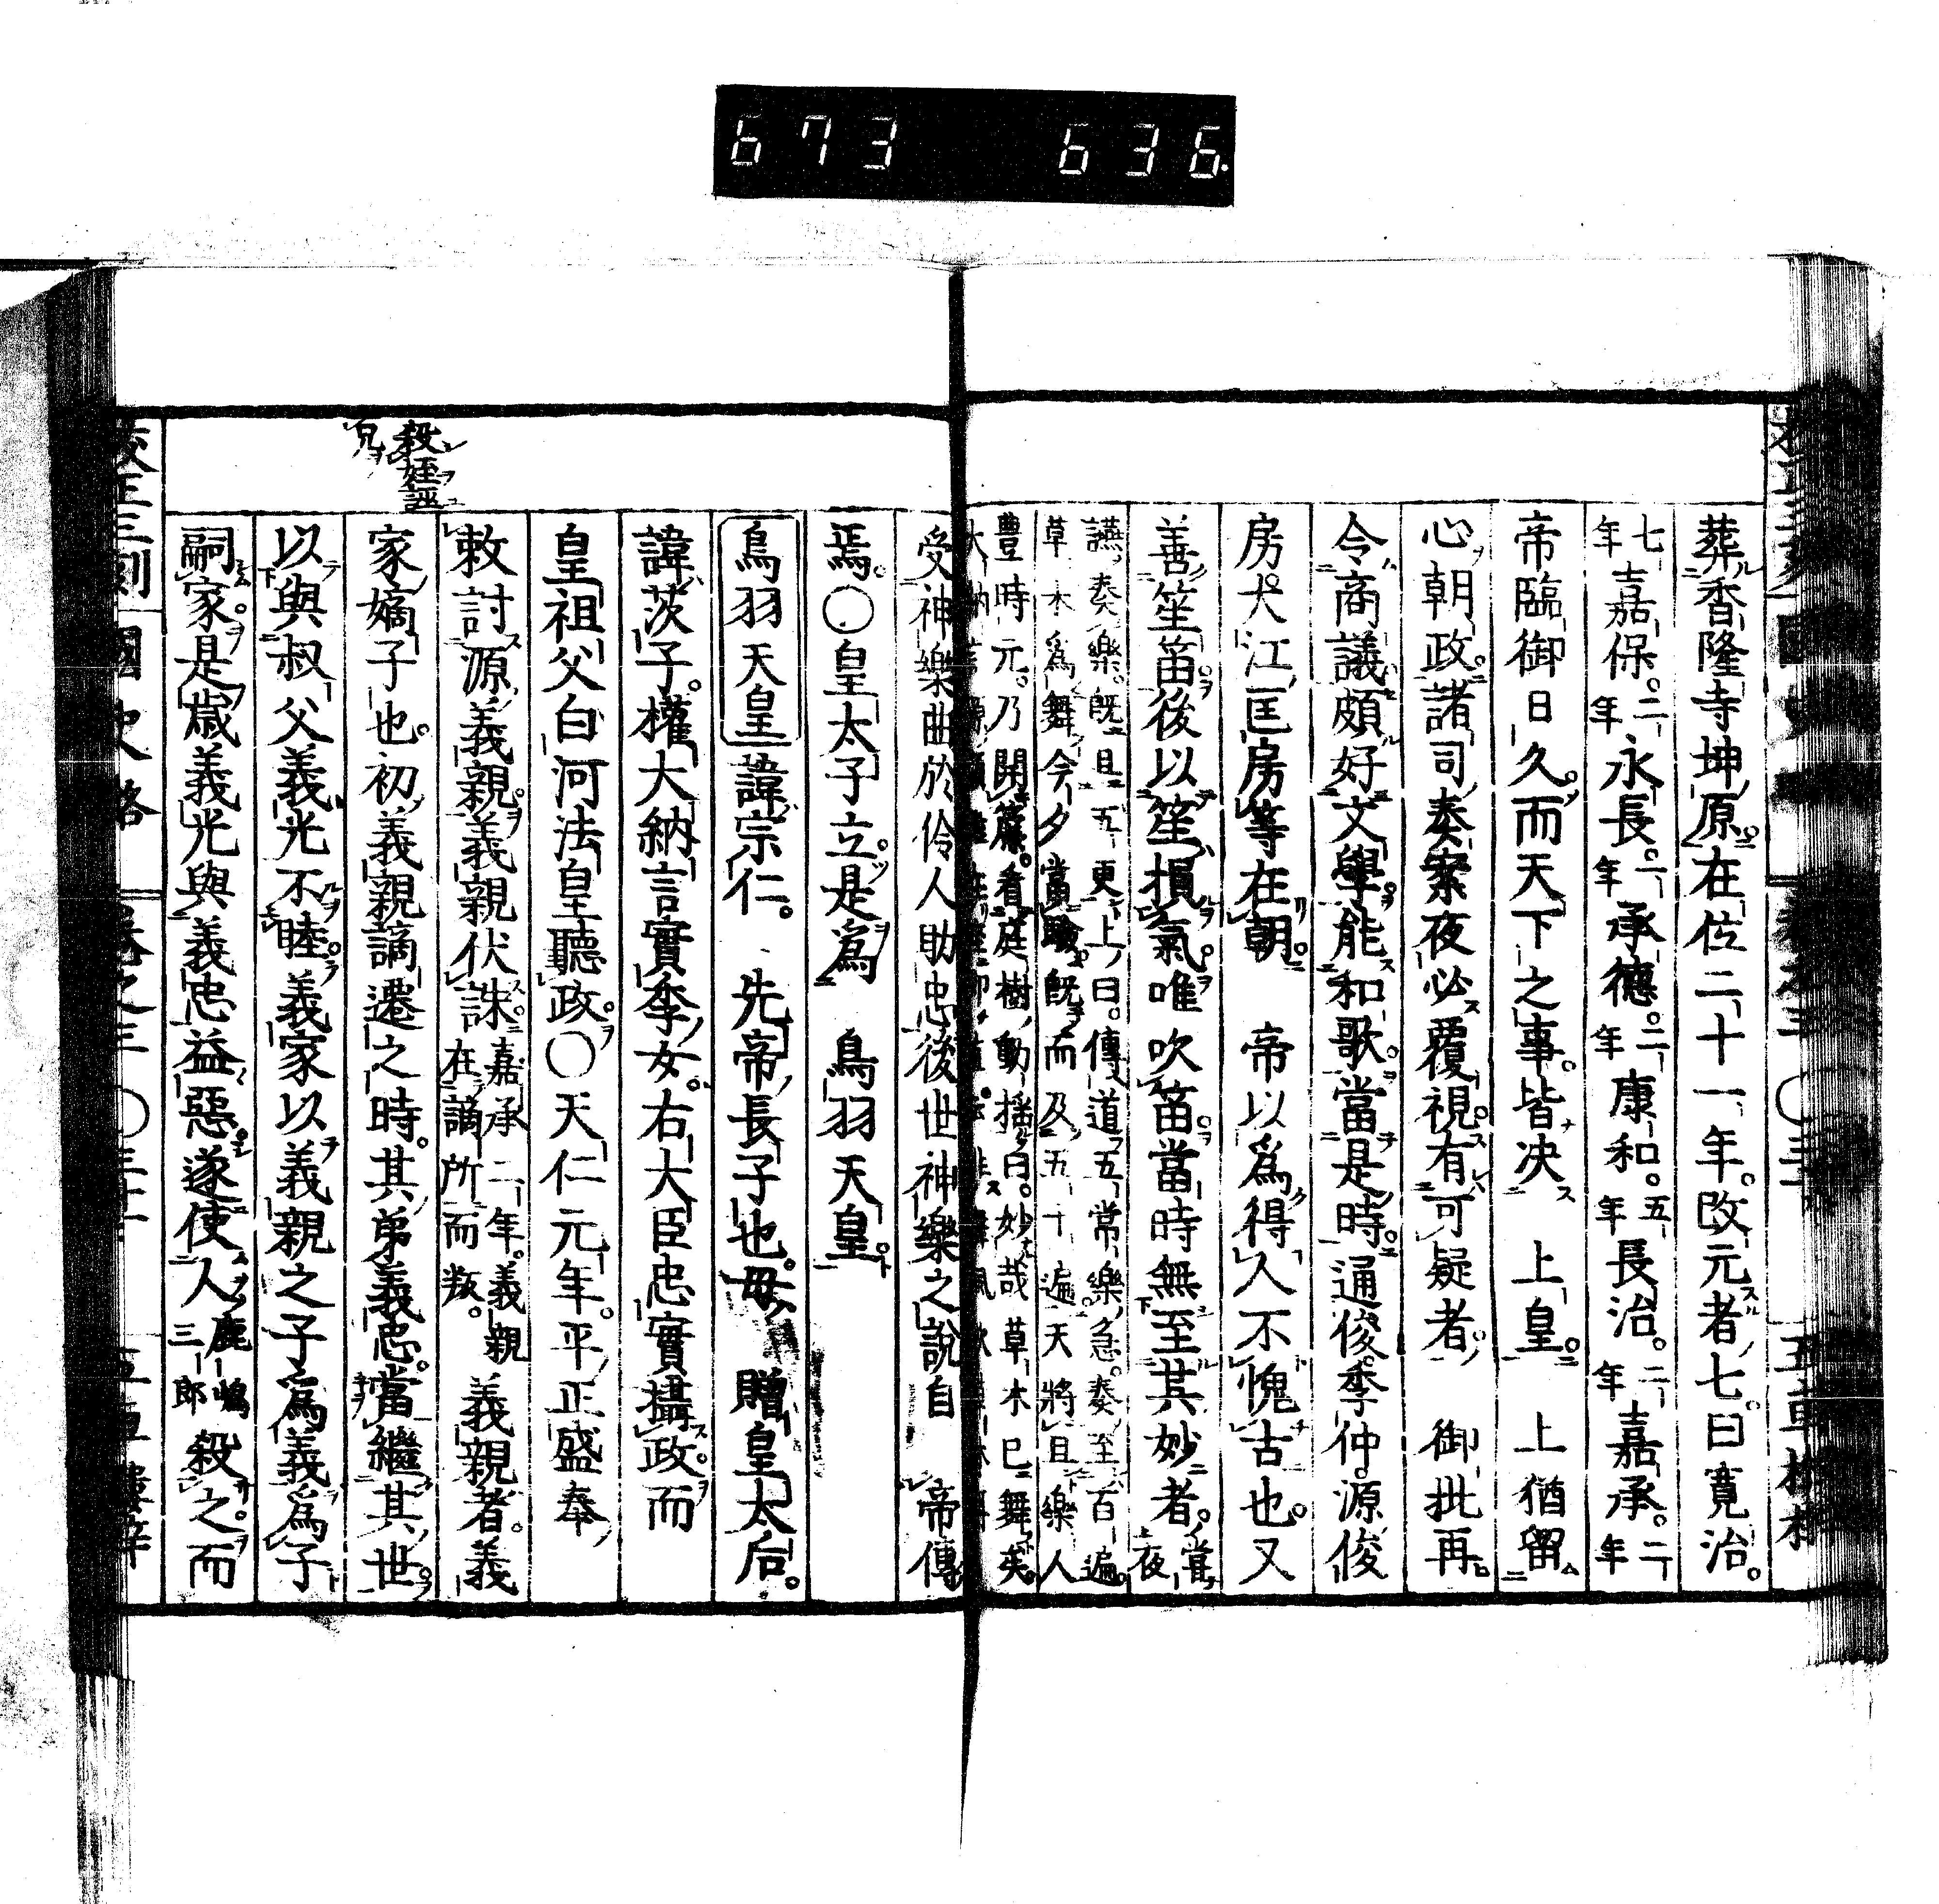 673 636
葬香隆寺坤原。在位二十一年。改元者七。曰寛治。
七年嘉保。二年永長。一年承德。二年康和。五年長治。二年嘉承。二年
帝臨御日久。而天下之事。皆决 上皇。 上猶留
心朝政。諸司奏案。夜必覆視。有可疑者 御批再
令商議。頗好文學。能和歌。當是時。通俊季仲。源俊
房大江匡房等在朝。 帝以爲得人不愧古也。又
善笙笛。後以笙損氣。唯吹笛。當時無至其妙者。嘗夜
讌奏樂。既且五更。上曰。傳道五常樂急。奏至百遍。
草木爲舞。今夕當驗。既而及五十遍。天將且。樂人
豊時元。乃開簾。看庭樹動搖。曰。妙哉草木已舞矣。
受神樂曲於伶人助忠。後世神樂之說自 帝傳
焉。○皇太子立。是爲 鳥羽天皇。
鳥羽天皇諱宗仁。 先帝長子也。母 贈皇太后。
諱茨子。權大納言實季女。右大臣忠實攝政。而
皇祖父白河法皇聽政。○天仁元年。平正盛奉
敕討源義親。義親伏誅。嘉承二年。義親在謫所而叛。義親者。義
家嫡子也。初義親謫遷之時。其弟義忠。當繼其世。
以與叔父義光不睦。義家以義親之子爲義爲子
嗣家。是歳義光與義忠益惡。遂使人鹿嶋三郎殺之。而
殺姪誣兄
國史略